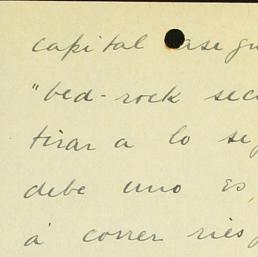 capital asegu
"bed-rock sec
tirar a lo seg
debe uno es
á correr ries